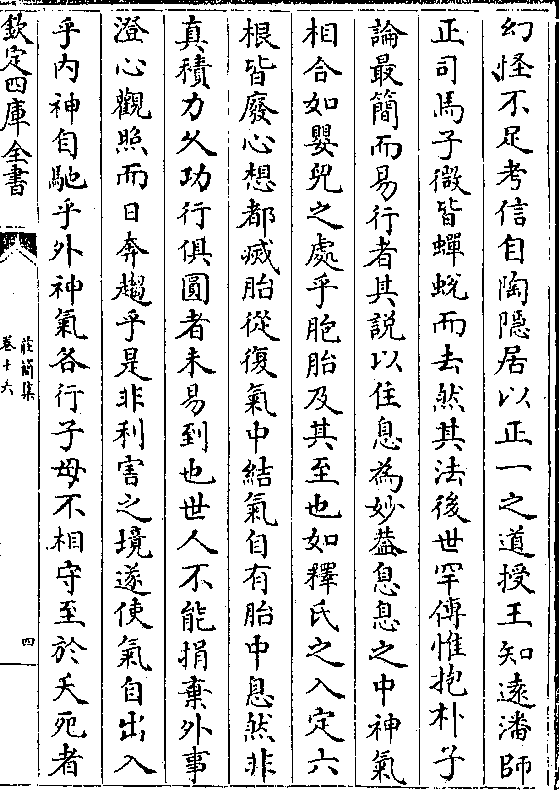 幻怪不足考信自陶隱居以正一之道授王知逺潘師
正司馬子微皆蟬蛻而去然其法後世罕傳惟抱朴子
論最簡而易行者其説以住息為妙葢息息之中神氣
相合如嬰兒之處乎胞胎及其至也如釋氏之入定六
根皆廢心想都滅胎從復氣中結氣自有胎中息然非
真積力久功行俱圓者未易到也世人不能捐棄外事
澄心觀照而日奔趨乎是非利害之境遂使氣自出入
乎内神自馳乎外神氣各行子母不相守至於夭死者
欽定四庫全書
莊簡集
卷十六
四